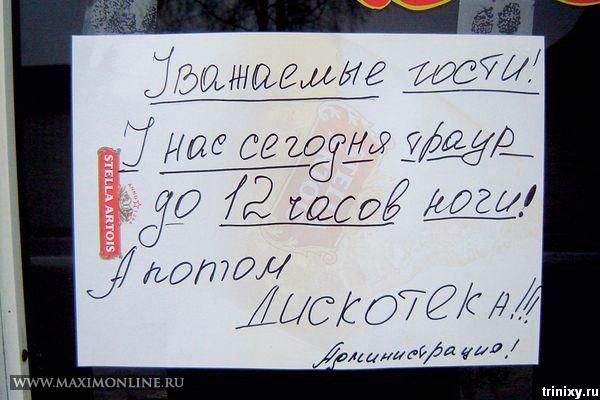 Уважаемые гости!
У нас сегодня траур
до 12 часов ночи!
А потом
Дискотека!!!
Администрация!
STELLA ARTOIS
STELLA ARTOIS
WWW.MAXIMONLINE.RU
trinixy.ru